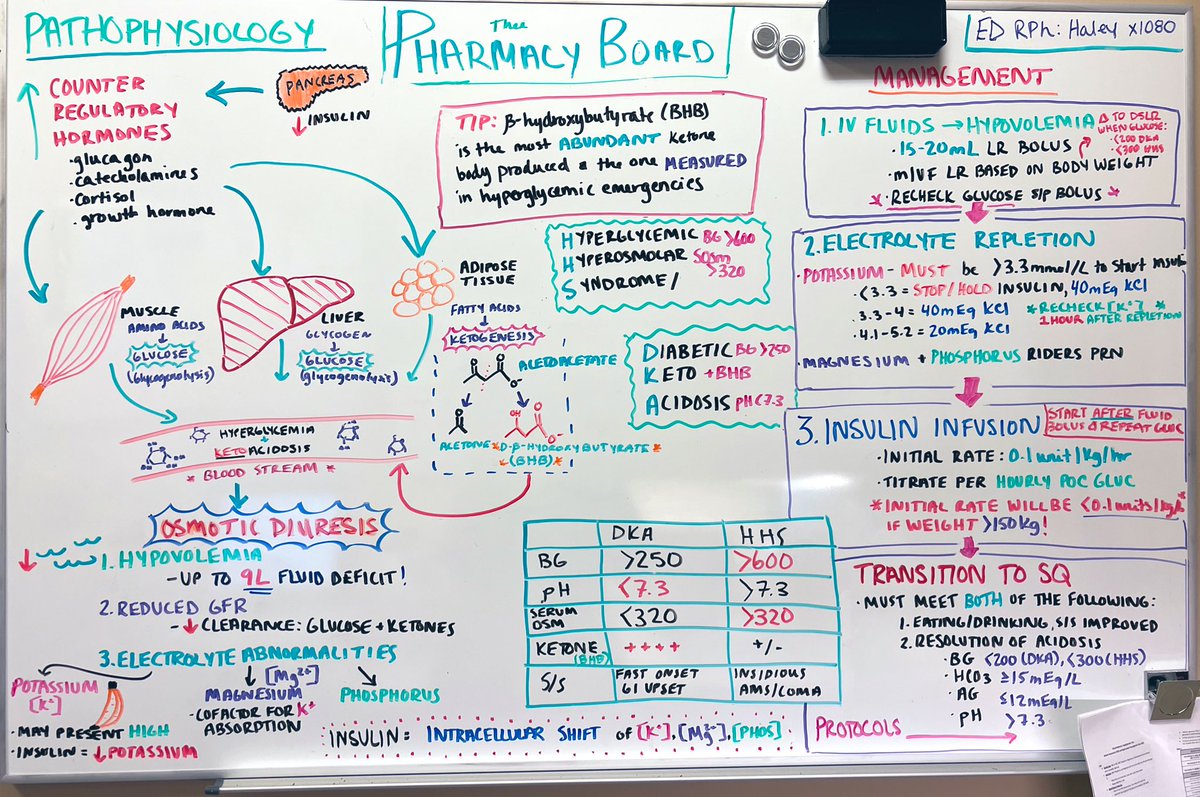 PATHOPHYSIOLOGY
Thee
PHARMACY BOARD
ED RPh: Haley x1080
COUNTER
REGULATORY
HORMONES
·glucagon
·catecholamines
·cortisol
·growth hormone
PANCREAS
↓INSULIN
MUSCLE
AMINO ACIDS
GLUCOSE
(glycogenolysis)
LIVER
GLYCOGEN
GLUCOSE
(glycogenolysis)
ADIPOSE
TISSUE
FATTY ACIDS
KETOGENESIS
ACETOACETATE
O
O
O
O⁻
O
OH
O
O⁻
ACETONE
*D-β-HYDROXYBUTYRATE*
*(BHB)*
HYPERGLYCEMIA
+
KETOACIDOSIS
*BLOOD STREAM*
OSMOTIC DIURESIS
↓ 1. HYPOVOLEMIA
-UP TO 9L FLUID DEFICIT!
2. REDUCED GFR
-↓CLEARANCE: GLUCOSE + KETONES
3. ELECTROLYTE ABNORMALITIES
POTASSIUM
[K⁺]
·MAY PRESENT HIGH
·INSULIN = ↓POTASSIUM
[Mg²⁺]
MAGNESIUM
·COFACTOR FOR K⁺
ABSORPTION
PHOSPHORUS
TIP: β-hydroxybutyrate (BHB)
is the most ABUNDANT ketone
body produced & the one MEASURED
in hyperglycemic emergencies
HYPERGLYCEMIC BG >600
HYPEROSMOLAR SOsm >320
SYNDROME/
DIABETIC BG >250
KETO +BHB
ACIDOSIS pH <7.3
DKA HHS
BG >250 >600
pH <7.3 >7.3
SERUM OSM <320 >320
KETONE (BHB) ++++ +/-
S/S FAST ONSET GI UPSET INSIDIOUS AMS/COMA
INSULIN = INTRACELLULAR SHIFT OF [K⁺], [Mg²⁺], [PHOS]
MANAGEMENT
1. IV FLUIDS → HYPOVOLEMIA
Δ TO D5LR
WHEN GLUCOSE:
·<200 DKA
·<300 HHS
·15-20mL LR BOLUS
·mIVF LR BASED ON BODY WEIGHT
*·RECHECK GLUCOSE S/P BOLUS*
2. ELECTROLYTE REPLETION
·POTASSIUM - MUST be >3.3mmol/L to start insulin
·<3.3 = STOP/HOLD INSULIN, 40mEq KCl
·3.3-4 = 40mEq KCl
·4.1-5.2 = 20mEq KCl
*RECHECK [K⁺]*
1 HOUR AFTER REPLETION
·MAGNESIUM + PHOSPHORUS RIDERS PRN
3. INSULIN INFUSION
START AFTER FLUID
BOLUS & REPEAT GLUC
·INITIAL RATE: 0.1 unit/kg/hr
·TITRATE PER HOURLY POC GLUC
*INITIAL RATE WILL BE <0.1 units/kg/h*
IF WEIGHT >150kg!
TRANSITION TO SQ
·MUST MEET BOTH OF THE FOLLOWING:
1. EATING/DRINKING, S/S IMPROVED
2. RESOLUTION OF ACIDOSIS
·BG <200 (DKA), <300 (HHS)
·HCO3 ≥15mEq/L
·AG ≤12mEq/L
·PH >7.3
PROTOCOLS →